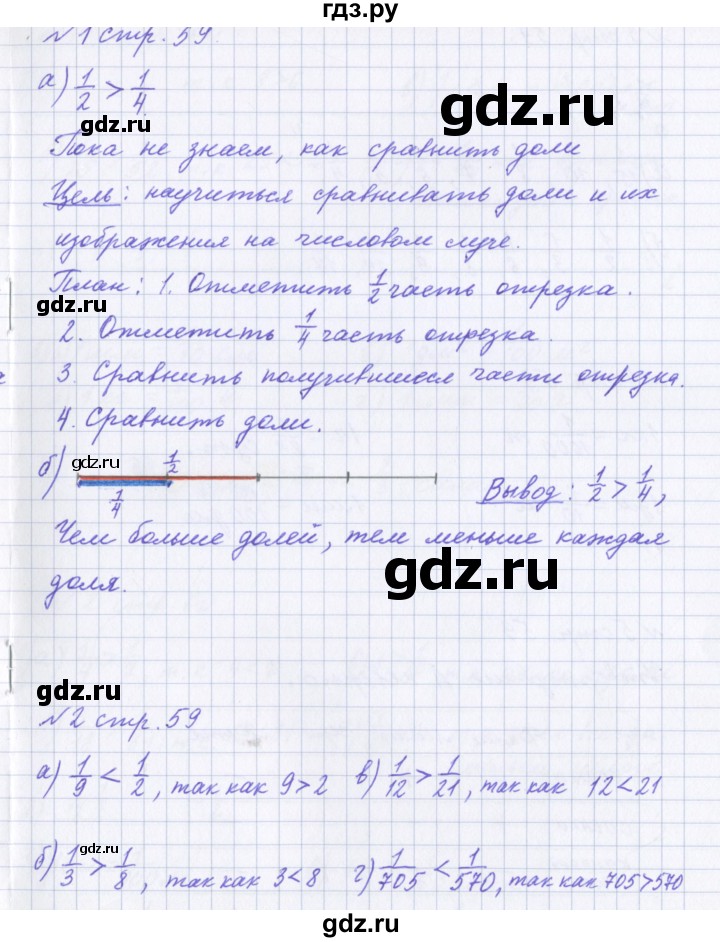 гдз.ру
№1 стр. 59
а) 1/2 > 1/4
gdz.ru
gdz.ru
Пока не знаем, как сравнить доли
Цель: научиться сравнивать доли и их
изображения на числовом луче.
План: 1. Отметить 1/2 часть отрезка.
gdz.ru
2. Отметить 1/4 часть отрезка.
3. Сравнить получившиеся части отрезка.
4. Сравнить доли.
б) gdz.ru 1/2
1/4
Вывод: 1/2 > 1/4,
Чем больше долей, тем меньше каждая
gdz.ru
доля.
gdz.ru
№2 стр. 59
а) 1/9 < 1/2, так как 9 > 2 в) 1/12 > 1/21, так как 12 < 21
gdz.ru
б) 1/3 > 1/8, так как 3 < 8 г) 1/705 < 1/570, так как 705 > 570
gdz.ru